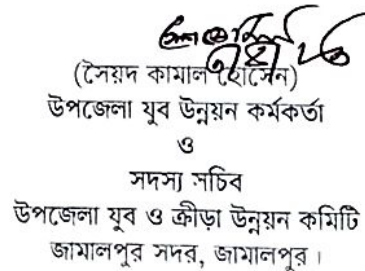 (সৈয়দ কামাল হোসেন)
উপজেলা যুব উন্নয়ন কর্মকর্তা
ও
সদস্য সচিব
উপজেলা যুব ও ক্রীড়া উন্নয়ন কমিটি
জামালপুর সদর, জামালপুর।